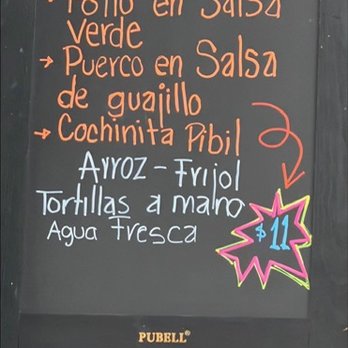 → Pollo en Salsa
verde
→ Puerco en Salsa
de guajillo
→ Cochinita Pibil
Arroz - Frijol
Tortillas a mano
Agua Fresca
$11
PUBELL®